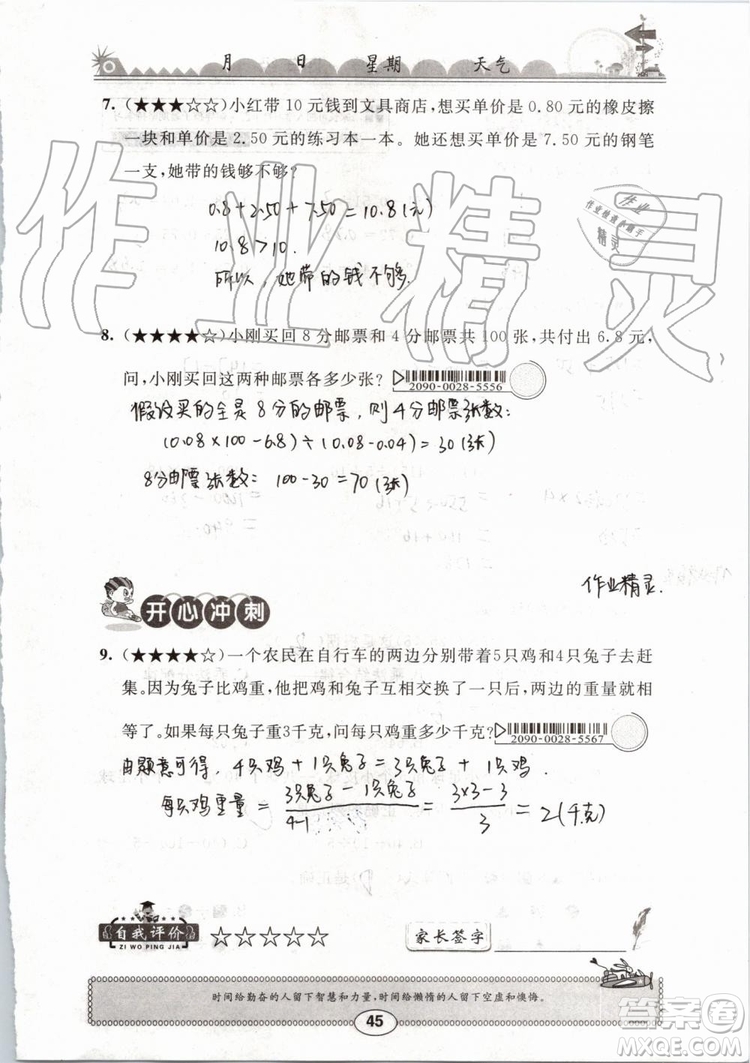 月 日 星期 天气
7. (★★★☆☆)小红带 10 元钱到文具商店，想买单价是 0.80 元的橡皮擦
一块和单价是 2.50 元的练习本一本。她还想买单价是 7.50 元的钢笔
一支，她带的钱够不够？
0.8+2.50+7.50=10.8(元)
10.8>10.
所以，她带的钱不够.
8. (★★★★☆)小刚买回 8 分邮票和 4 分邮票共 100 张，共付出 6.8 元，
问，小刚买回这两种邮票各多少张？
2090-0028-5556
假设买的全是8分的邮票，则4分邮票张数：
(0.08×100-6.8)÷(0.08-0.04)=30(张)
8分邮票张数：100-30=70(张)
作业精灵.
开心冲刺
9. (★★★★☆)一个农民在自行车的两边分别带着5只鸡和4只兔子去赶
集。因为兔子比鸡重，他把鸡和兔子互相交换一只后，两边的重量就相
等了。如果每只兔子重3千克，问每只鸡重多少千克？
2090-0028-5567
由题意可得，4只鸡+1只兔子=3只兔子+1只鸡.
每只鸡重量=(3只兔子-1只兔子)/(4-1)=(3×3-3)/3=2(千克)
自我评价
ZI WO PING JIA
☆☆☆☆☆
家长签字
时间给勤奋的人留下智慧和力量，时间给懒惰的人留下空虚和懊悔。
45
作业精灵
作业
精灵
答案圈
MXQE.COM